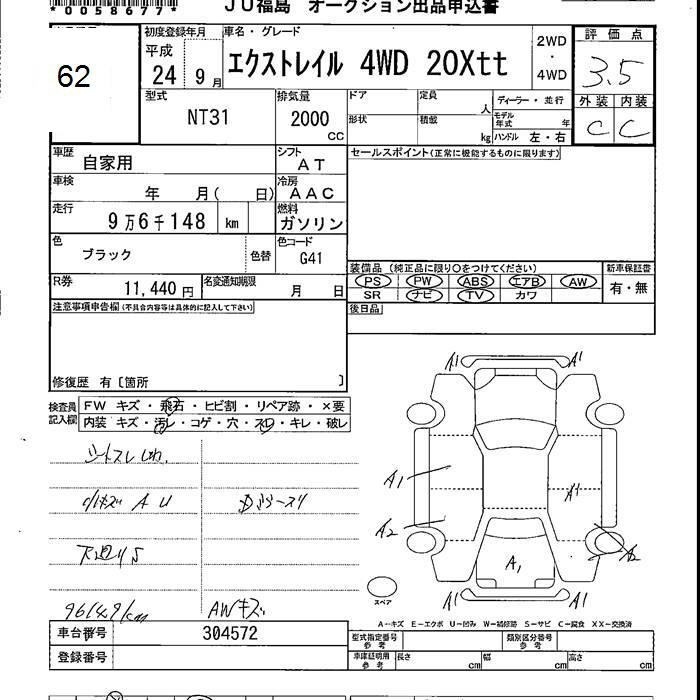 *0058677*
JU福島 オークション出品申込書
62
初度登録年月
平成
24 9月
車名・グレード
エクストレイル 4WD 20Xtt
2WD
・
4WD
評価点
3.5
外装 内装
C C
型式
NT31
排気量
2000
CC
ドア
形状
定員
人
積載
kg
ディーラー・並行
モデル年式 年
ハンドル 左・右
車歴
自家用
シフト
AT
セールスポイント(正常に機能するものに限ります)
車検
年 月( 日)
冷房
AAC
走行
9万6千148 km
燃料
ガソリン
色
ブラック
色替
色コード
G41
装備品 (純正品に限り○をつけてください)
PS PW ABS エアB AW
SR ナビ TV カワ
新車保証書
有・無
R券
11,440 円
名変通知期限
月 日
後日品
注意事項申告欄(不具合内容等は具体的に記入して下さい)
修復歴 有〔箇所 〕
検査員
記入欄
FW キズ・飛石・ヒビ割・リペア跡・×要
内装 キズ・汚レ・コゲ・穴・スレ・キレ・破レ
シートスレしわ
小キズ AU
下廻りS
AWキズ
A1 A1
A1
A1
A2
A1
A2
A1 A1
スペア
A-キズ E-エクボ U-凹み W-補修跡 S-サビ C-腐食 XX-交換済
車台番号
304572
登録番号
型式指定番号
参考
類別区分番号
参考
車庫証明用
参考
長さ cm
幅 cm
高さ cm